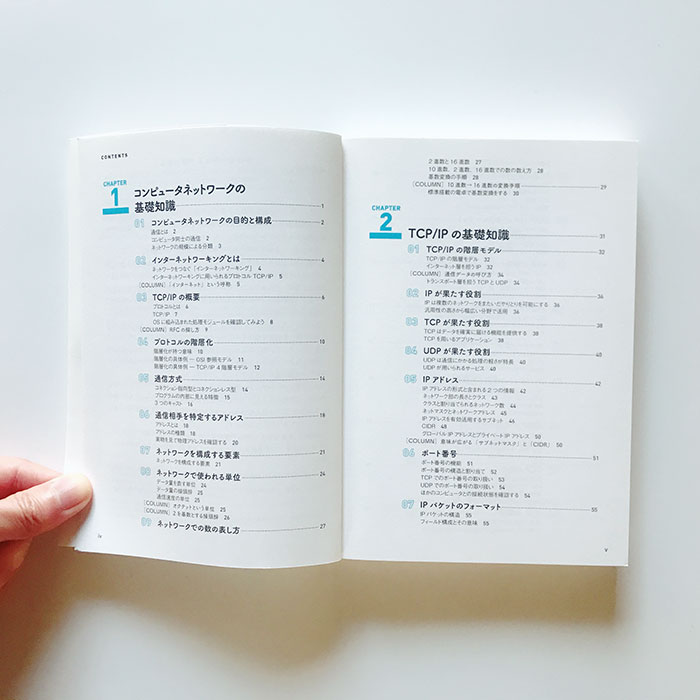 CONTENTS
CHAPTER
1
コンピュータネットワークの
基礎知識 1
01 コンピュータネットワークの目的と構成 2
通信とは 2
コンピュータ同士の通信 2
ネットワークの規模による分類 3
02 インターネットワーキングとは 4
ネットワークをつなぐ「インターネットワーキング」 4
インターネットワーキングに用いられるプロトコル TCP/IP 5
[COLUMN] 「インターネット」という呼称 5
03 TCP/IP の概要 6
プロトコルとは 6
TCP/IP 7
OS に組み込まれた処理モジュールを確認してみよう 8
[COLUMN] RFC の探し方 9
04 プロトコルの階層化 10
階層化が持つ意味 10
階層化の具体例 ― OSI 参照モデル 11
階層化の具体例 ― TCP/IP 4 階層モデル 12
05 通信方式 14
コネクション指向型とコネクションレス型 14
プログラムの内部に見える特徴 15
3 つのキャスト 16
06 通信相手を特定するアドレス 18
アドレスとは 18
アドレスの種類 18
実物を見て物理アドレスを確認する 20
07 ネットワークを構成する要素 21
ネットワークを構成する要素 21
08 ネットワークで使われる単位 24
データ量を表す単位 24
データ量の接頭辞 25
通信速度の単位 25
[COLUMN] オクテットという単位 25
[COLUMN] 2 を基数とする接頭辞 26
09 ネットワークでの数の表し方 27
iv
2 進数と 16 進数 27
10 進数、2 進数、16 進数での数の数え方 28
基数変換の手順 28
[COLUMN] 10 進数→ 16 進数の変換手順 29
標準搭載の電卓で基数変換をする 30
CHAPTER
2
TCP/IP の基礎知識 31
01 TCP/IP の階層モデル 32
TCP/IP の階層モデル 32
インターネット層を担う IP 32
[COLUMN] 通信データの呼び方 34
トランスポート層を担う TCP と UDP 34
02 IP が果たす役割 36
IP は複数のネットワークをまたいだやりとりを可能にする 36
汎用性の高さから幅広い分野で活用 36
03 TCP が果たす役割 38
TCP はデータを確実に届ける機能を提供する 38
TCP を用いるアプリケーション 38
04 UDP が果たす役割 40
UDP は通信にかかる処理の軽さが特長 40
UDP が用いられるサービス 40
05 IP アドレス 42
IP アドレスの形式と含まれる 2 つの情報 42
ネットワーク部の長さとクラス 43
クラスと割り当てられるネットワーク数 44
ネットマスクとネットワークアドレス 45
IP アドレスを有効活用するサブネット 46
CIDR 49
グローバル IP アドレスとプライベート IP アドレス 50
[COLUMN] 意味が広がる「サブネットマスク」と「CIDR」 50
06 ポート番号 51
ポート番号の機能 51
ポート番号の構造と割り当て 52
TCP でのポート番号の取り扱い 53
UDP でのポート番号の取り扱い 54
ほかのコンピュータとの接続状態を確認する 54
07 IP パケットのフォーマット 55
IP パケットの構造 55
フィールド構成とその意味 55
v